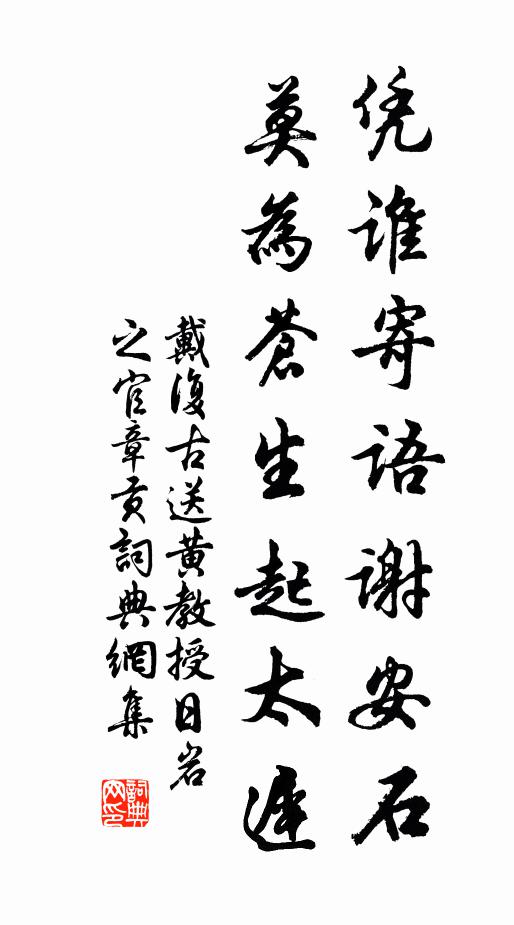 凭谁寄语谢安石
莫為蒼生起太遲
戴復古送黄教授日岩
之官章貢詞典網集
詞典
网印